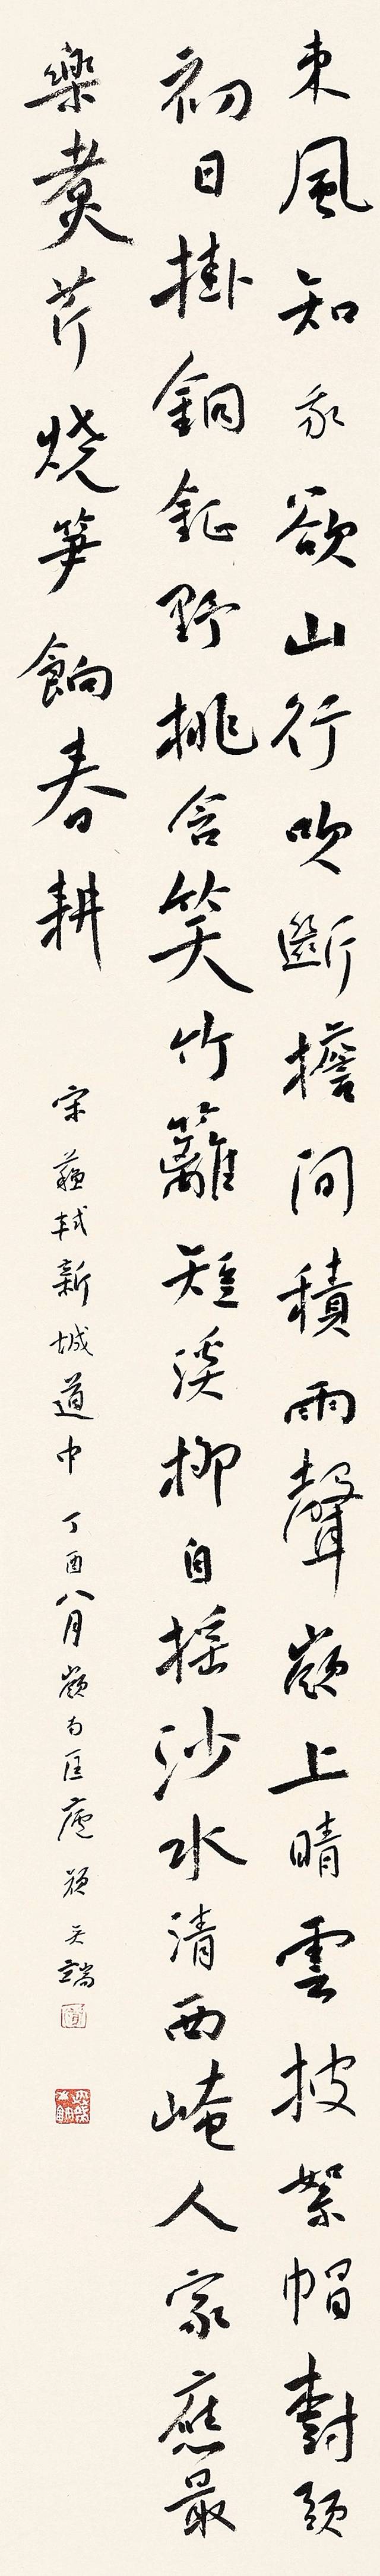 東風知我欲山行吹斷檐間積雨聲嶺上晴雲披絮帽樹頭
初日掛銅鉦野桃含笑竹籬短溪柳自搖沙水清西崦人家應最
樂煑芹烧笋餉春耕
宋蘇軾新城道中 丁酉八月嶺南匡廬 端